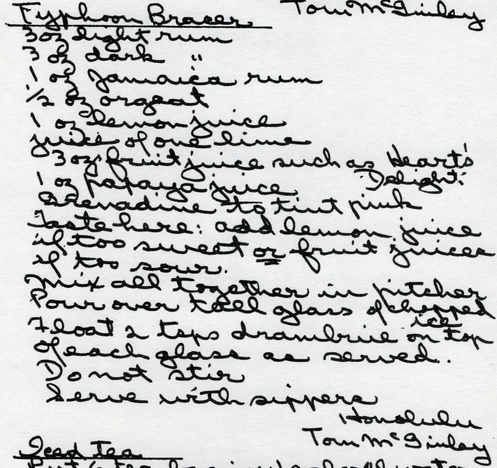 Typhoon Bracer Tom McGinley
3 oz light rum
3 oz dark "
1 oz Jamaica rum
1/2 oz orgeat
1 oz lemon juice
juice of one lime
3 oz fruit juice such as Heart's
Delight.
1 oz papaya juice
Grenadine to tint pink
Taste here: add lemon juice
if too sweet or fruit juices
if too sour.
Mix all together in pitcher
Pour over tall glass of chopped
ice
Float 2 tsps drambuie on top
of each glass as served.
Do not stir
Serve with sippers
Honolulu
Tom McGinley
Iced tea